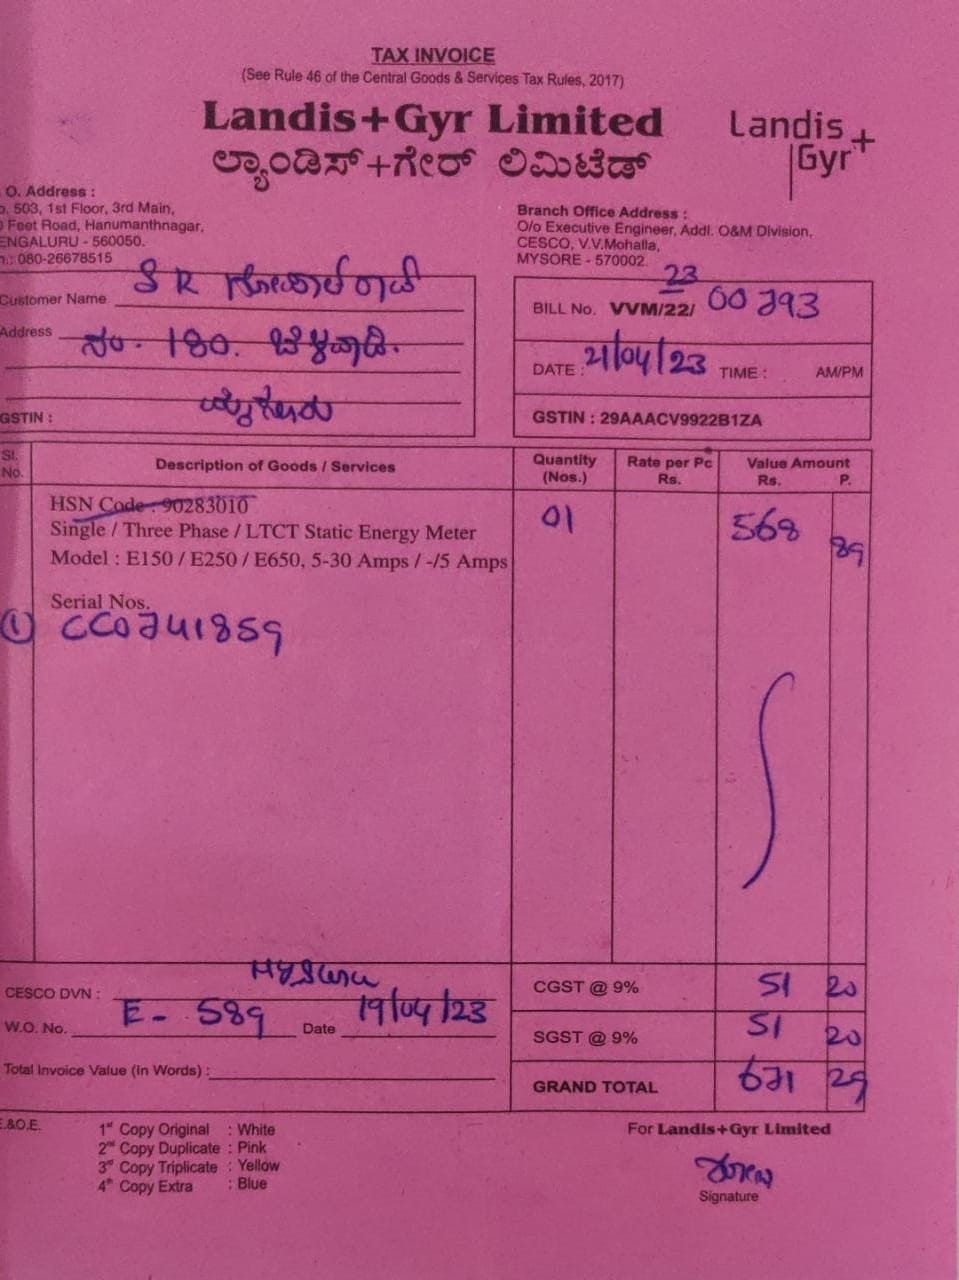 TAX INVOICE
(See Rule 46 of the Central Goods & Services Tax Rules, 2017)
Landis+Gyr Limited
ಲ್ಯಾಂಡಿಸ್+ಗೇರ್ ಲಿಮಿಟೆಡ್
Landis
Gyr+
O. Address :
. 503, 1st Floor, 3rd Main,
Feet Road, Hanumanthnagar,
ENGALURU - 560050.
.: 080-26678515
Branch Office Address :
O/o Executive Engineer, Addl. O&M Division,
CESCO, V.V.Mohalla,
MYSORE - 570002.
Customer Name S R ಗೋಪಾಲ್ ರಾವ್
Address ನಂ. 180. ಬೆಳವಾಡಿ.
ಮೈಸೂರು
GSTIN :
23
BILL No. VVM/22/ 00793
DATE : 21/04/23 TIME : AM/PM
GSTIN : 29AAACV9922B1ZA
Sl. No. Description of Goods / Services Quantity (Nos.) Rate per Pc Rs. Value Amount Rs. P.
HSN Code : 90283010
Single / Three Phase / LTCT Static Energy Meter 01 568 89
Model : E150 / E250 / E650, 5-30 Amps / -/5 Amps
Serial Nos.
① CC0741859
CESCO DVN :
W.O. No. E- 589 Date 19/04/23
Total Invoice Value (In Words) :
CGST @ 9% 51 20
SGST @ 9% 51 20
GRAND TOTAL 671 29
E.&O.E.
1st Copy Original : White
2nd Copy Duplicate : Pink
3rd Copy Triplicate : Yellow
4th Copy Extra : Blue
For Landis+Gyr Limited
Signature